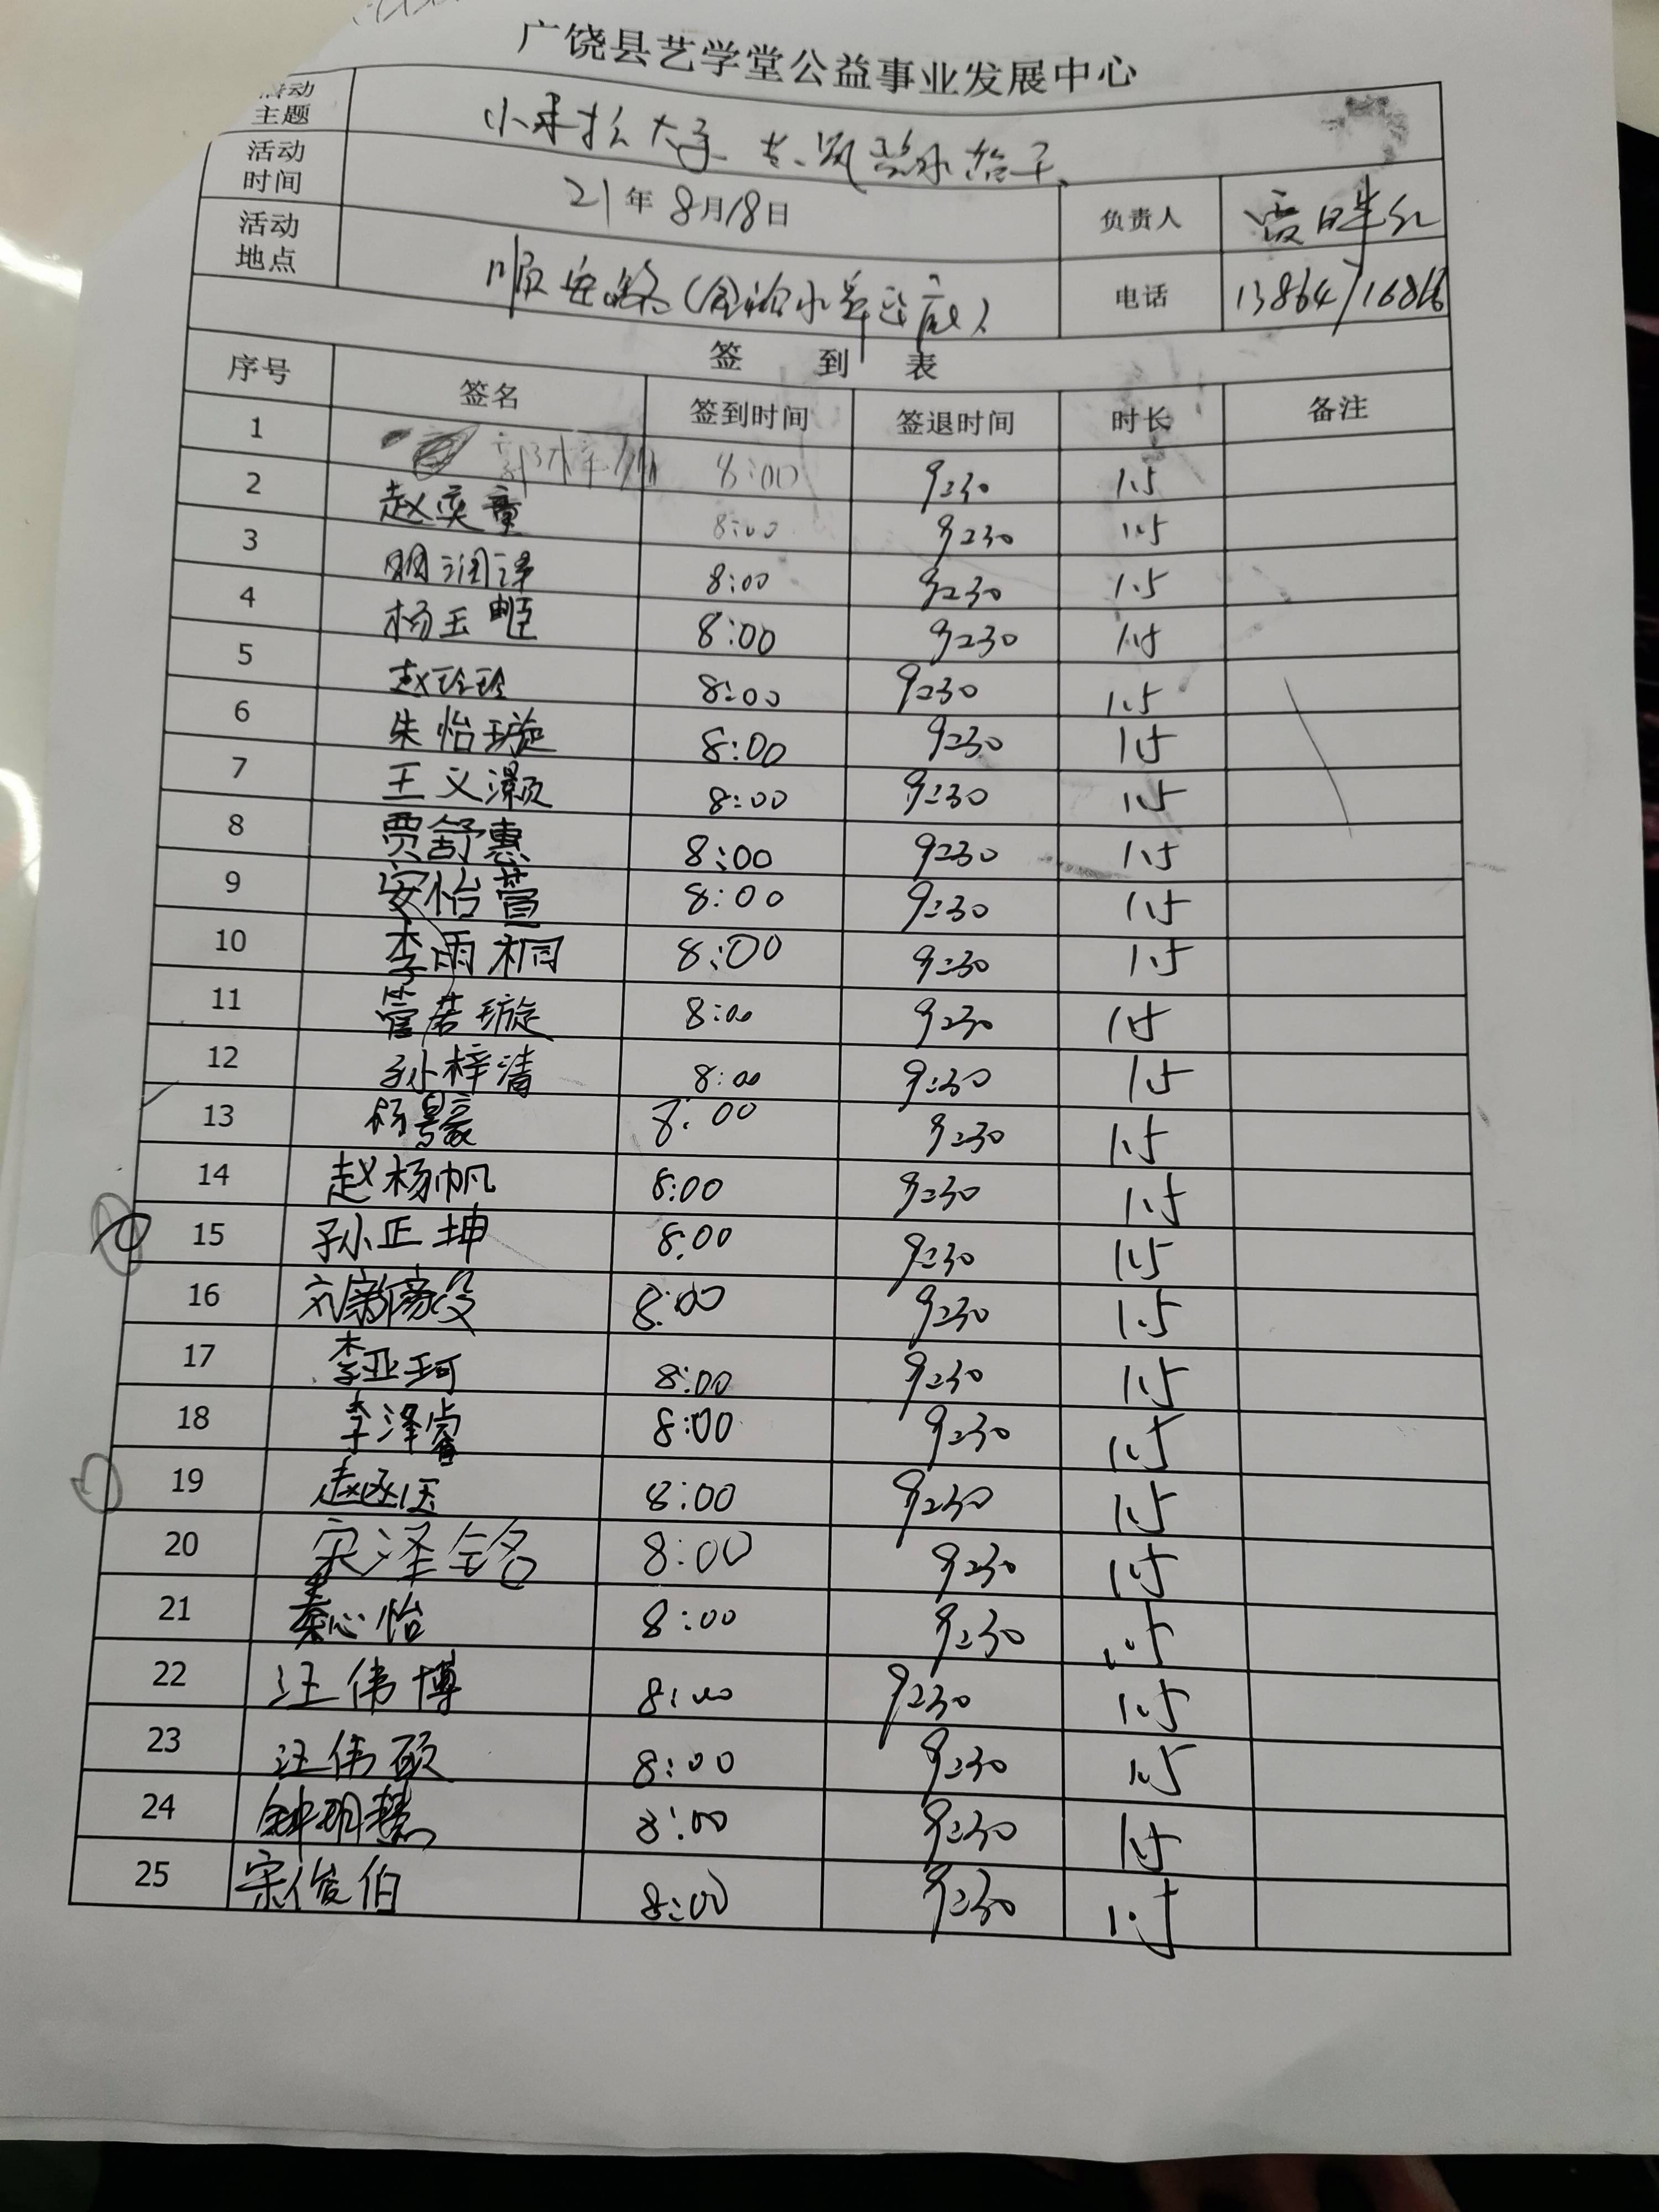 广饶县艺学堂公益事业发展中心
活动主题 小手拉大手
活动时间 21年8月18日 负责人
活动地点 电话
签 到 表
序号 签名 签到时间 签退时间 时长 备注
1 8:00 9:30 1.5
2 赵奕童 8:00 9:30 1.5
3 明润泽 8:00 9:30 1.5
4 杨玉 8:00 9:30 1.5
5 赵玲玲 8:00 9:30 1.5
6 朱怡璇 8:00 9:30 1.5
7 王义灏 8:00 9:30 1.5
8 贾舒惠 8:00 9:30 1.5
9 安怡萱 8:00 9:30 1.5
10 李雨桐 8:00 9:30 1.5
11 管若璇 8:00 9:30 1.5
12 孙梓清 8:00 9:30 1.5
13 杨景豪 8:00 9:30 1.5
14 赵杨帆 8:00 9:30 1.5
15 孙正坤 8:00 9:30 1.5
16 8:00 9:30 1.5
17 李亚珂 8:00 9:30 1.5
18 李泽睿 8:00 9:30 1.5
19 赵 8:00 9:30 1.5
20 宋泽铭 8:00 9:30 1.5
21 秦心怡 8:00 9:30 1.5
22 汪伟博 8:00 9:30 1.5
23 汪伟硕 8:00 9:30 1.5
24 钟明慧 8:00 9:30 1.5
25 宋俊伯 8:00 9:30 1.5